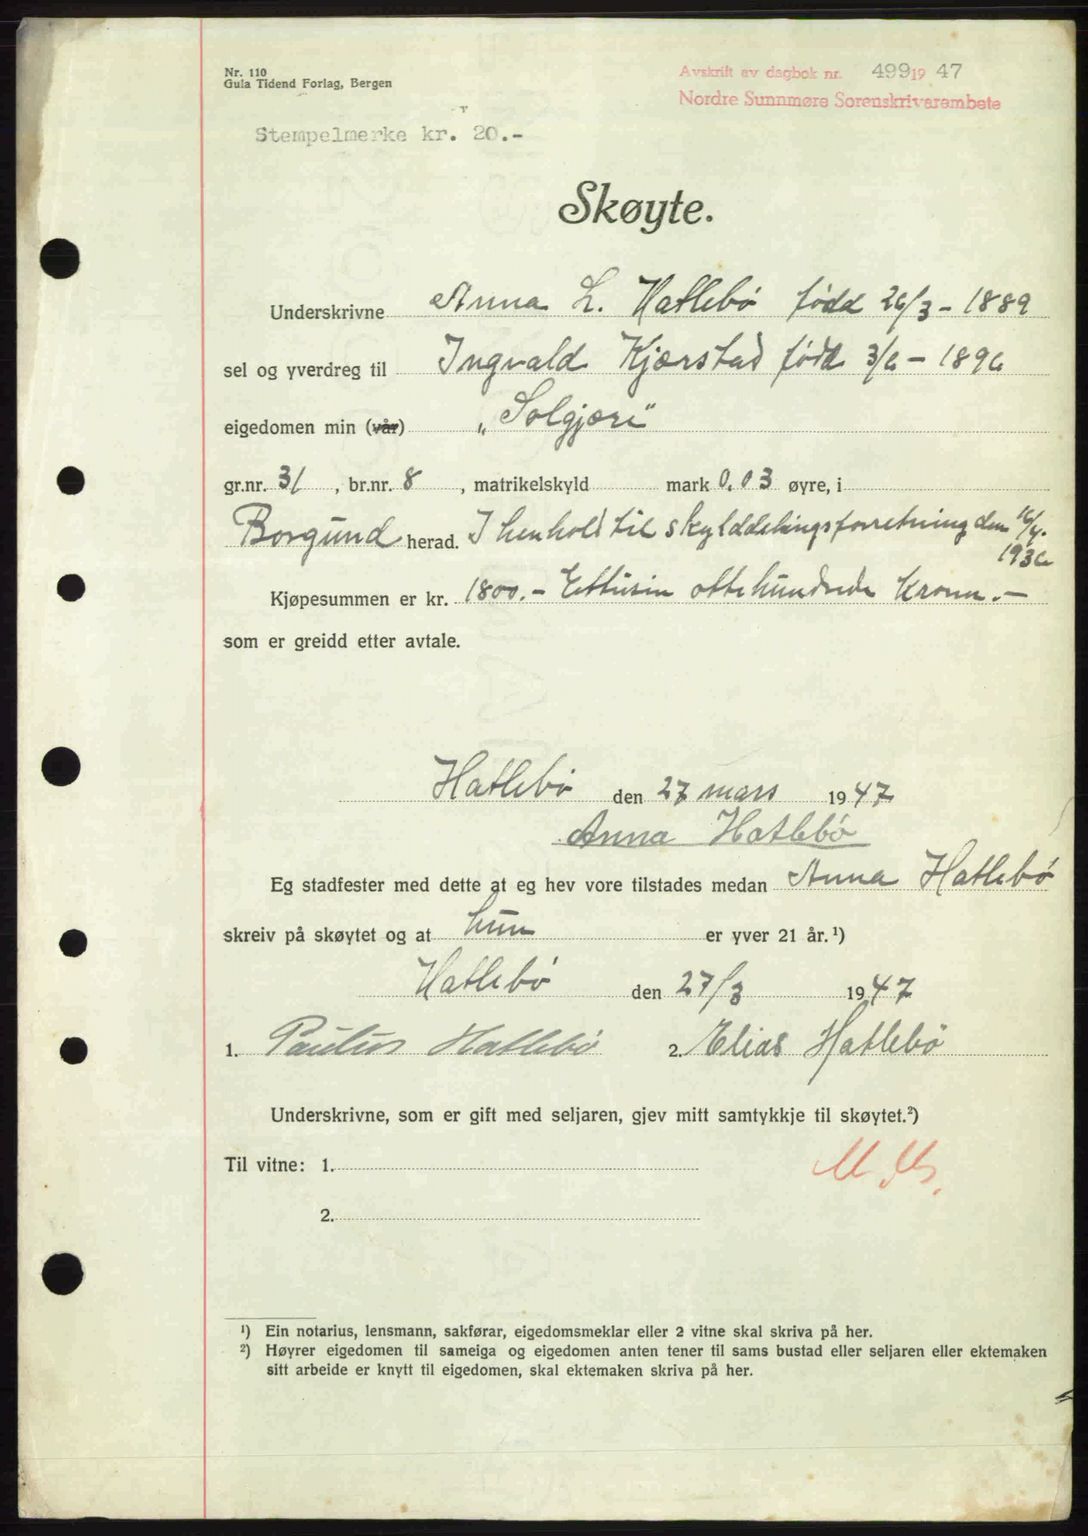 Nr. 110
Gula Tidend Forlag, Bergen
Avskrift av dagbok nr. 499 19 47
Nordre Sunnmøre Sorenskrivarembete
Stempelmerke kr. 20.-
Skøyte.
Underskrivne Anna L. Hatlebø född 26/3 - 1889
sel og yverdreg til Ingvald Kjærstad född 3/6 - 1896
eigedomen min (vår) „Solgjære"
gr.nr. 31, br.nr. 8, matrikelskyld mark 0.03 øyre, i
Borgund herad. I henhold til skylddelingsforretning den 16/4.
1936
Kjøpesummen er kr. 1800.- Ettusin ottehundrede Kroner.-
som er greidd etter avtale.
Hatlebø den 27 mars 1947
Anna Hatlebø
Eg stadfester med dette at eg hev vore tilstades medan Anna Hatlebø
skreiv på skøytet og at hun er yver 21 år.¹)
Hatlebø den 27/3 1947
1. Paulus Hatlebø 2. Elias Hatlebø
Underskrivne, som er gift med seljaren, gjev mitt samtykkje til skøytet.²)
Til vitne: 1.
2.
¹) Ein notarius, lensmann, sakførar, eigedomsmeklar eller 2 vitne skal skriva på her.
²) Høyrer eigedomen til sameiga og eigedomen anten tener til sams bustad eller seljaren eller ektemaken
sitt arbeide er knytt til eigedomen, skal ektemaken skriva på her.